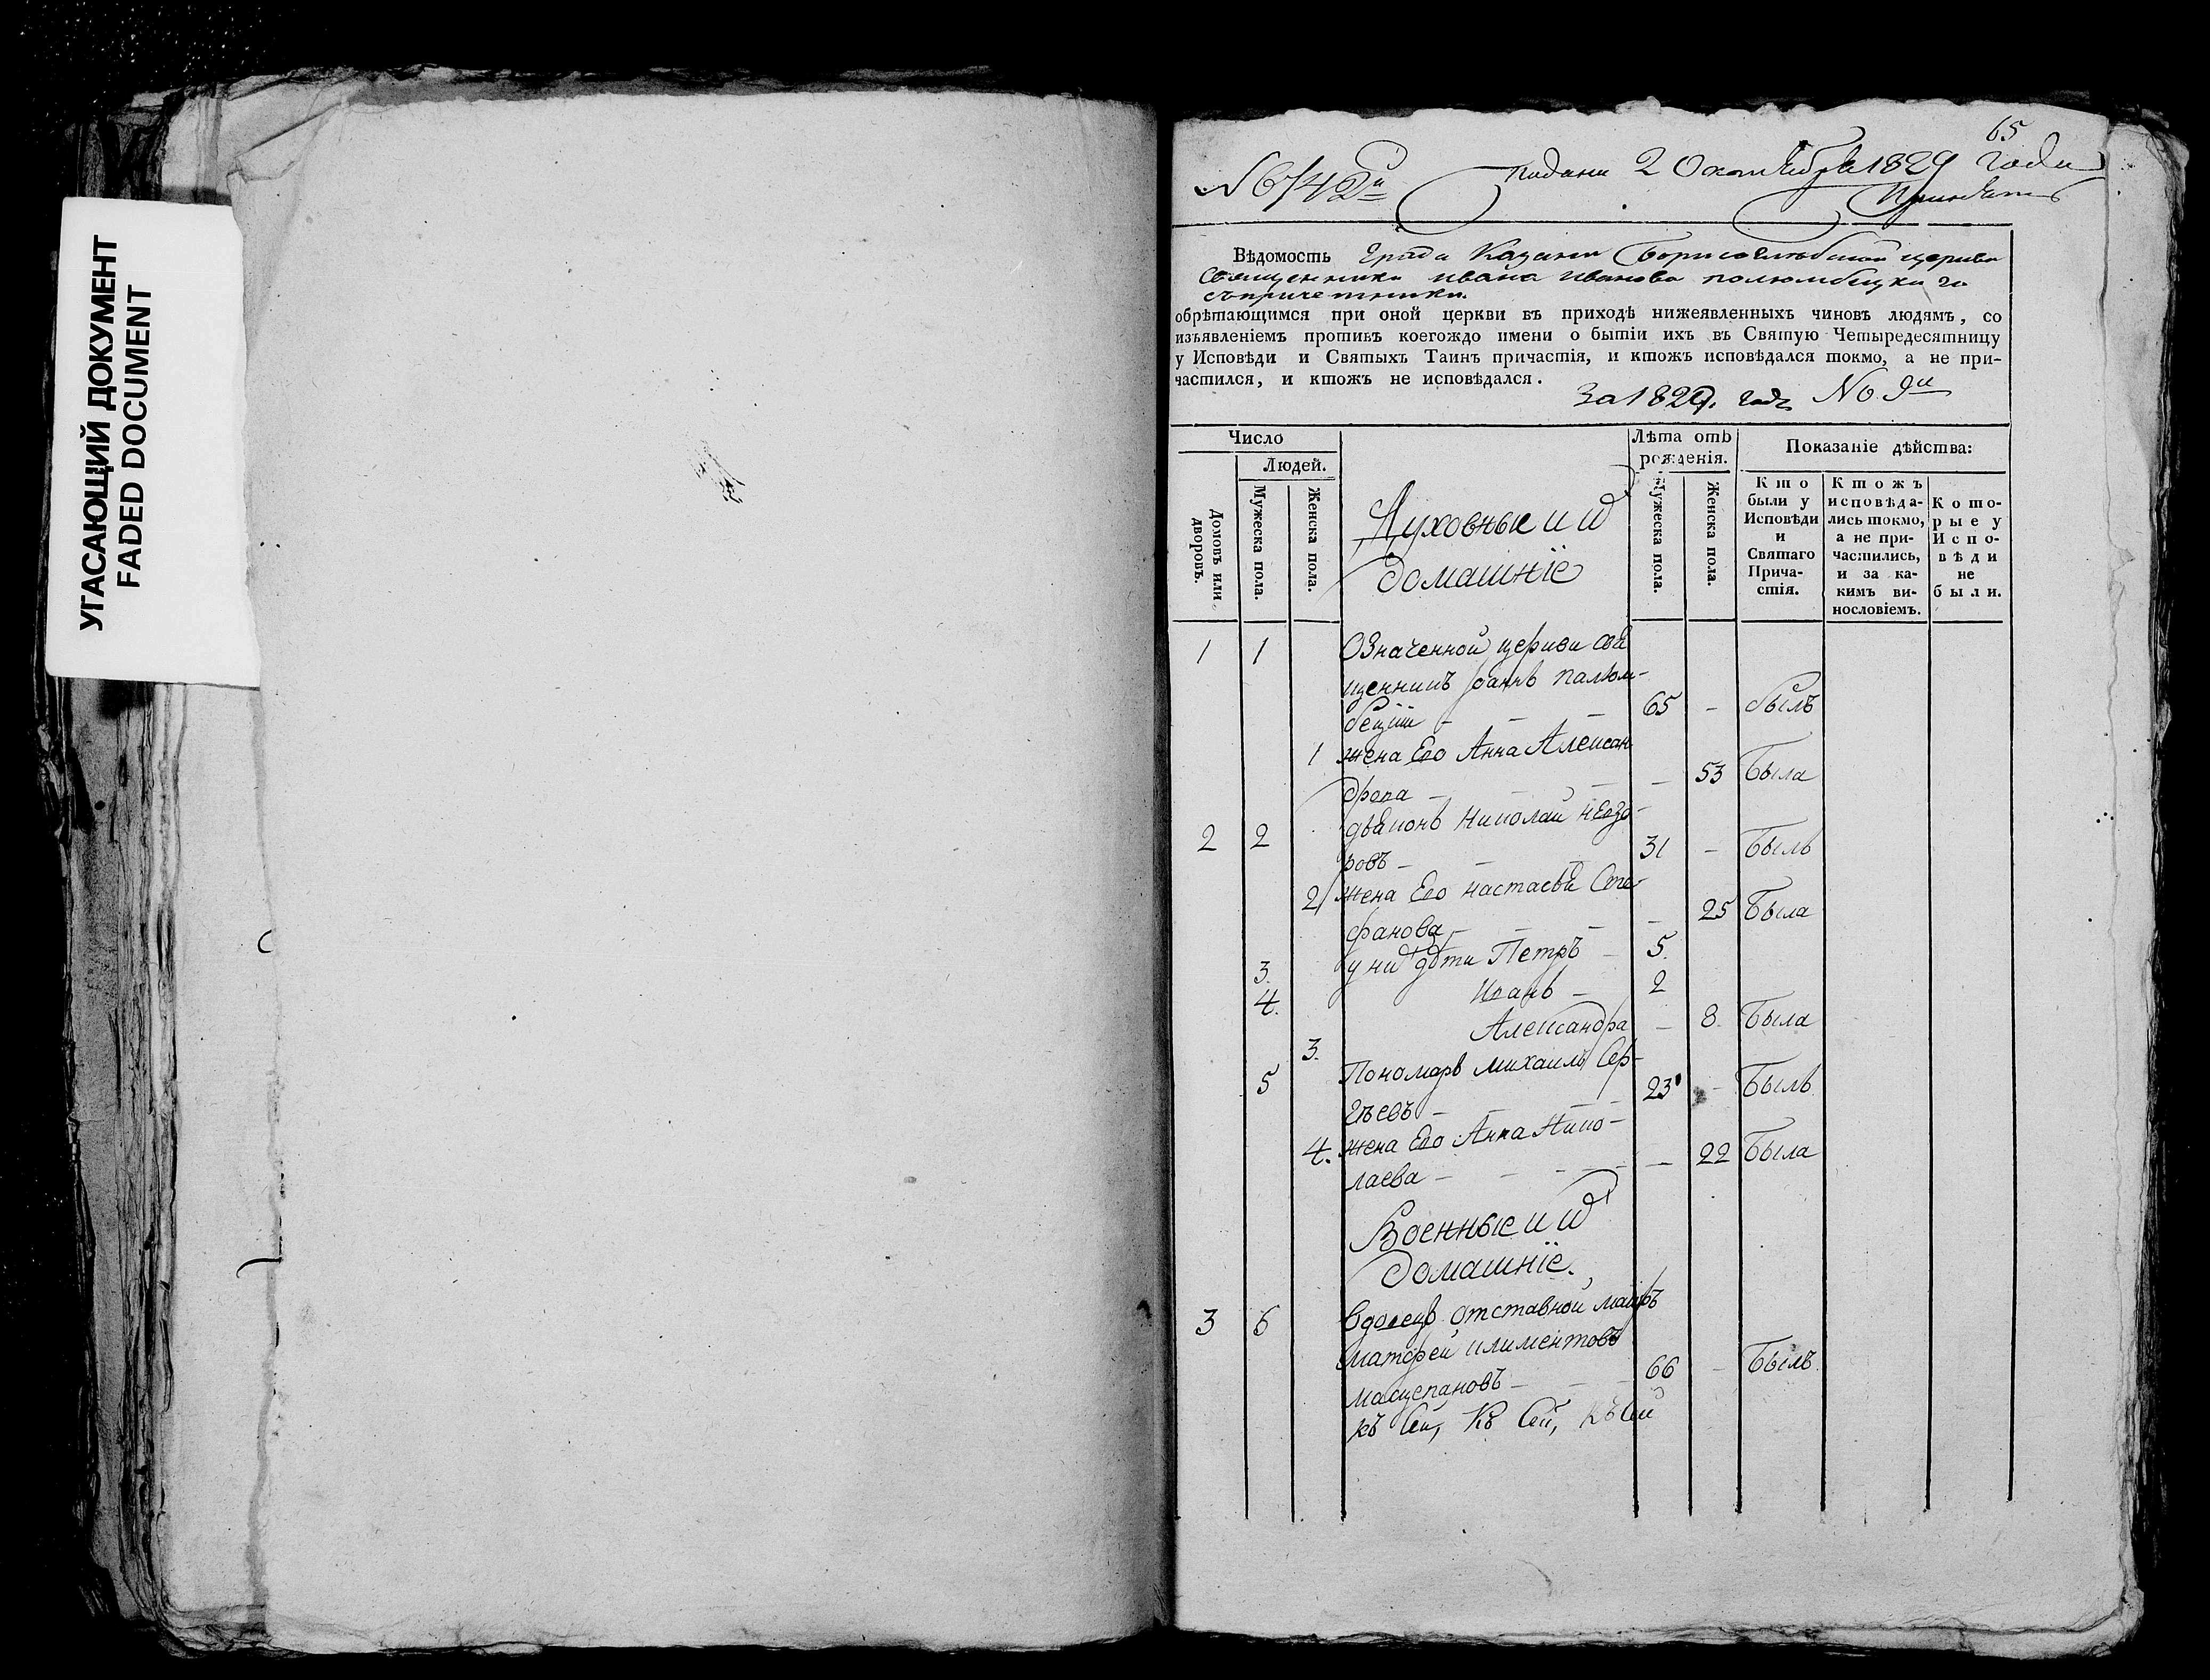 УГАСАЮЩИЙ ДОКУМЕНТ
FADED DOCUMENT
65
№ 6742й
подана 2 Октября 1829 года
Вѣдомость Града Казани Борисоглѣбской церкви
Священника Ивана Иванова Полюмбецкаго
съ причетники.
обрѣтающимся при оной церкви въ приходѣ нижеявленныхъ чиновъ людямъ, со
изъявленіемъ противъ коегождо имени о бытіи ихъ въ Святую Четыредесятницу
у Исповѣди и Святыхъ Таинъ причастія, и ктожъ исповѣдался токмо, а не при-
частился, и ктожъ не исповѣдался.
За 1829. годъ № 9й
Число
Людей.
Домовъ или дворовъ.
Мужеска пола.
Женска пола.
Духовные и ихъ
домашніе
Лѣта отъ рожденія.
Мужеска пола.
Женска пола.
Показаніе дѣйства:
Кто были у Исповѣди и Святаго Прича-стія.
Ктожъ исповѣда-лись токмо, а не при-частились, и за ка-кимъ ви-нословіемъ.
Кото-рые у Испо-вѣди не были.
1 1 Означенной церкви свя
щенникъ Іоаннъ Палюм-
бецкій - - - 65 - былъ
1 жена Его Анна Алексан
дрова - - - - 53 Была
2 2 дьяконъ Николай Невзо-
ровъ - - - 31 - Былъ
2 жена Его Настасья Сте-
фанова - - - - 25 Была
3. у них дѣти Петръ - 5.
4. Иванъ - 2
3. Александра - 8. Была
5 Пономарь Михаилъ Сер-
гѣевъ - - - 23 - Былъ
4. жена Его Анна Нико-
лаева - - - - - 22 Была
Военные и ихъ
домашніе.
3 6 вдовецъ отставной маіоръ
Матфей Климентовъ
Мащепановъ - - - 66 - Былъ